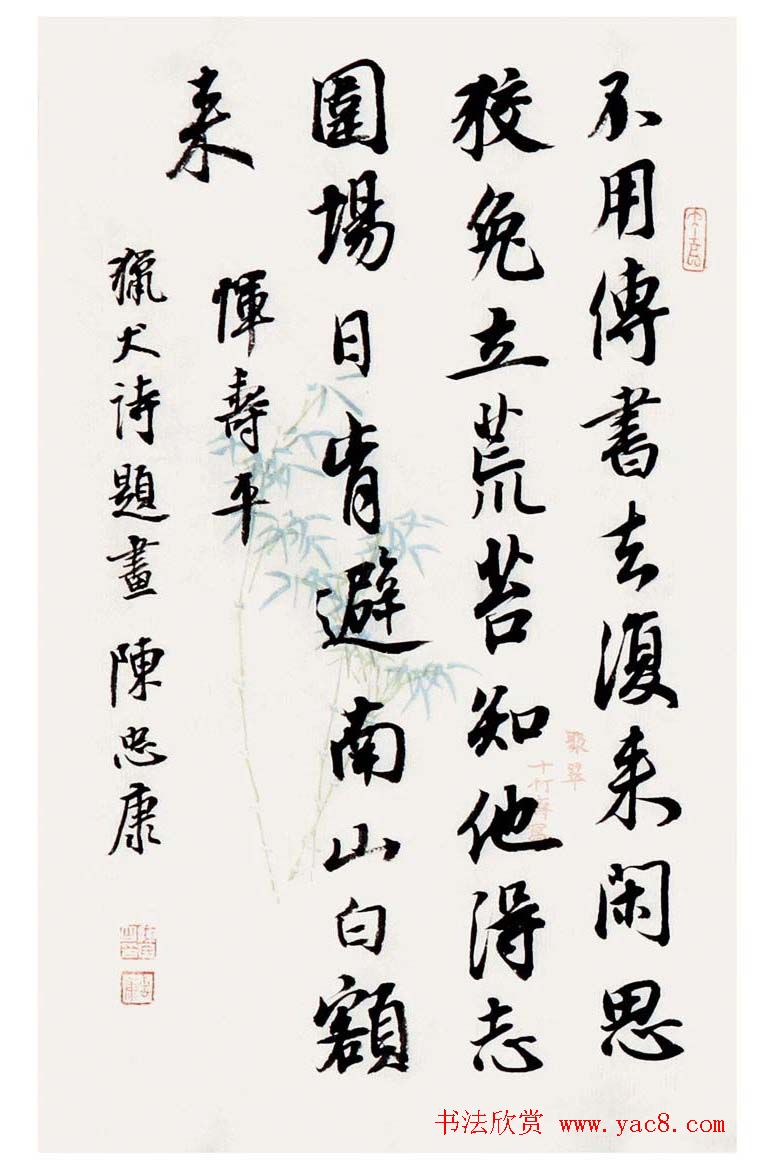 不用傳書去復来閑思
狡兔立荒苔知他得志
圍場日肯避南山白額
来
惲壽平
獵犬詩題畫 陳忠康
聚翠
十竹齋寫
书法欣赏 www.yac8.com